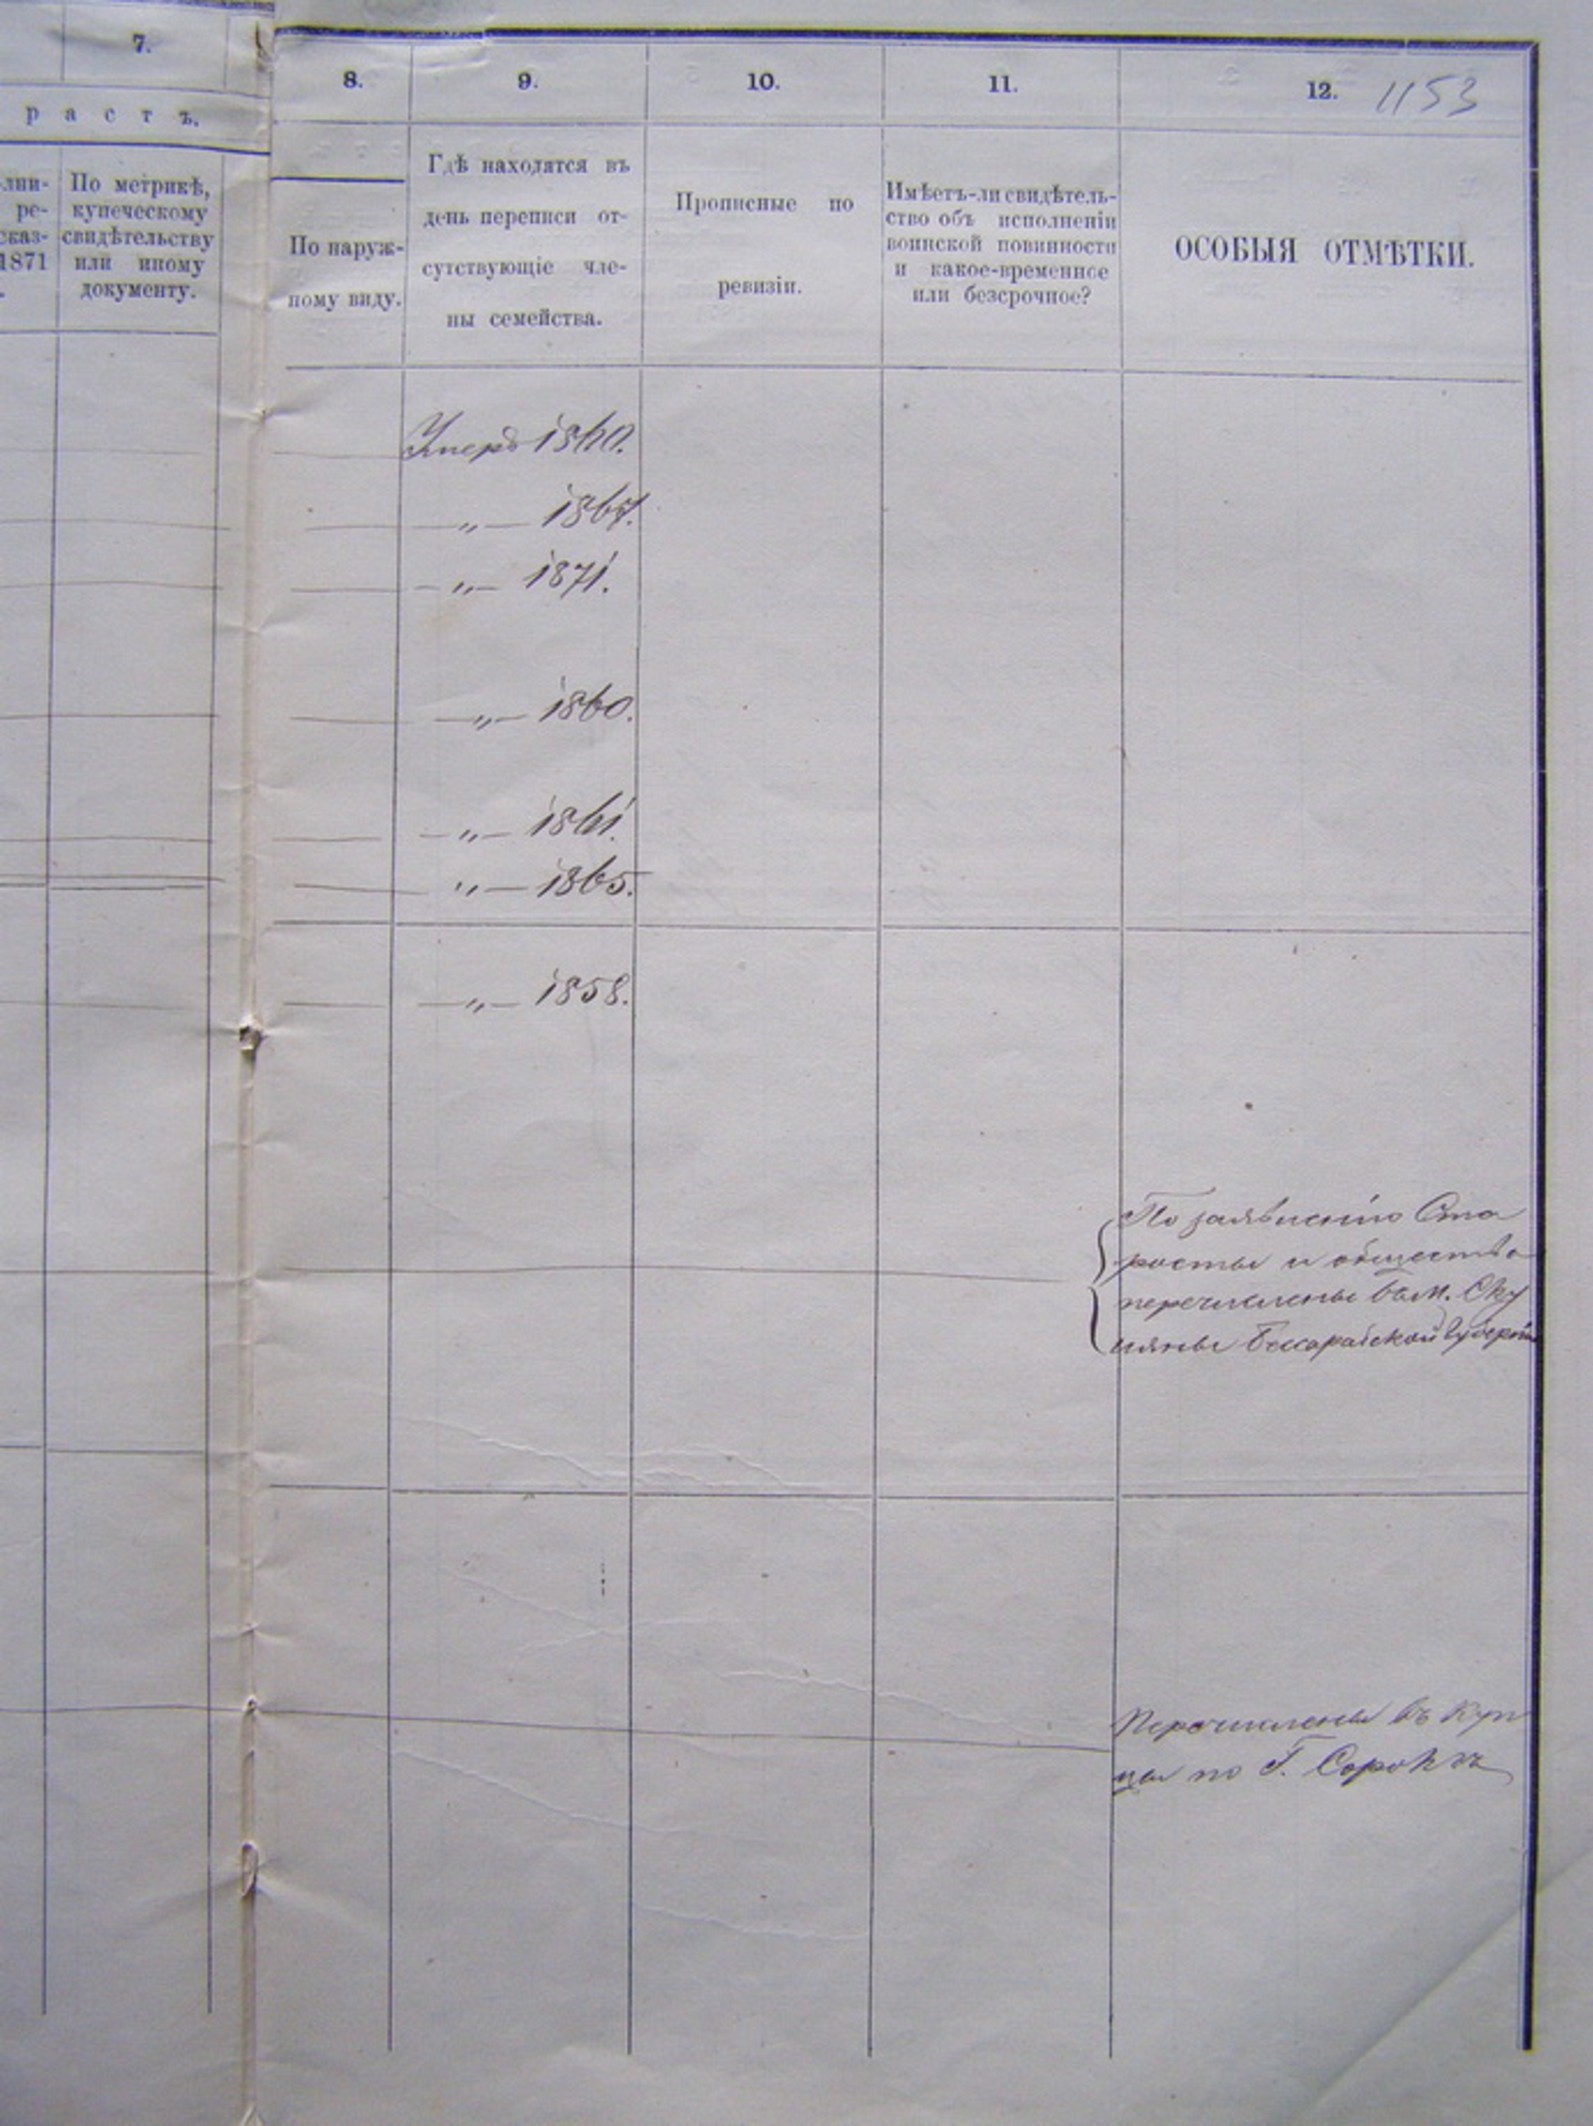 7.
р а с т ъ.
лни-
ре-
сказ-
1871
По метрикѣ,
купеческому
свидѣтельству
или иному
документу.
8.
По наруж-
ному виду.
9.
Гдѣ находятся въ
день переписи от-
сутствующіе чле-
ны семейства.
10.
Прописные по
ревизіи.
11.
Имѣетъ-ли свидѣтель-
ство объ исполненіи
воинской повинности
и какое-временное
или безсрочное?
12. 1153
ОСОБЫЯ ОТМѢТКИ.
Умеръ 1860.
—„— 1867.
—„— 1871.
—„— 1860.
—„— 1861.
„— 1865.
—„— 1858.
По заявленію Ста
росты и общества
перечислены въ м. Ску
ляны Бессарабской Губерніи
Перечислены въ Куп
цы по Г. Сорокъ